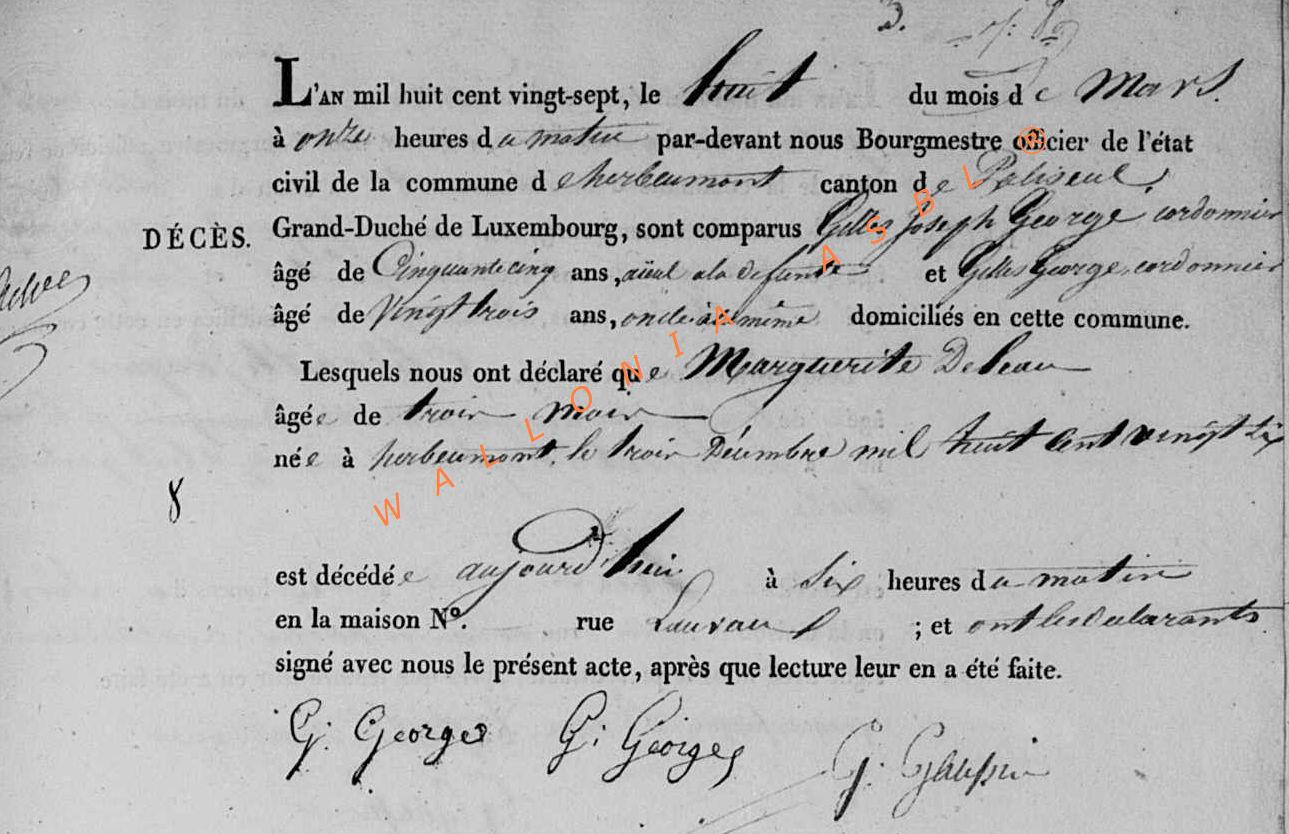 3.
L'AN mil huit cent vingt-sept, le huit du mois de Mars.
à onze heures du matin par-devant nous Bourgmestre officier de l'état
civil de la commune d'herbeumont canton de Paliseul,
DÉCÈS. Grand-Duché de Luxembourg, sont comparus Gilles Joseph George cordonnier
âgé de Cinquante cinq ans, aïeul a la defunte et Gilles George, cordonnier
âgé de Vingt trois ans, oncle à la même domiciliés en cette commune.
Lesquels nous ont déclaré que Marguerite
âgée de trois mois
née à herbeumont, le trois Décembre mil huit cent vingt six
8
est décédée aujourd'hui à Six heures du matin
en la maison Nº. rue ; et ont les declarants
signé avec nous le présent acte, après que lecture leur en a été faite.
G. Georges G. Georges G.
WALLONIA ASBL ©